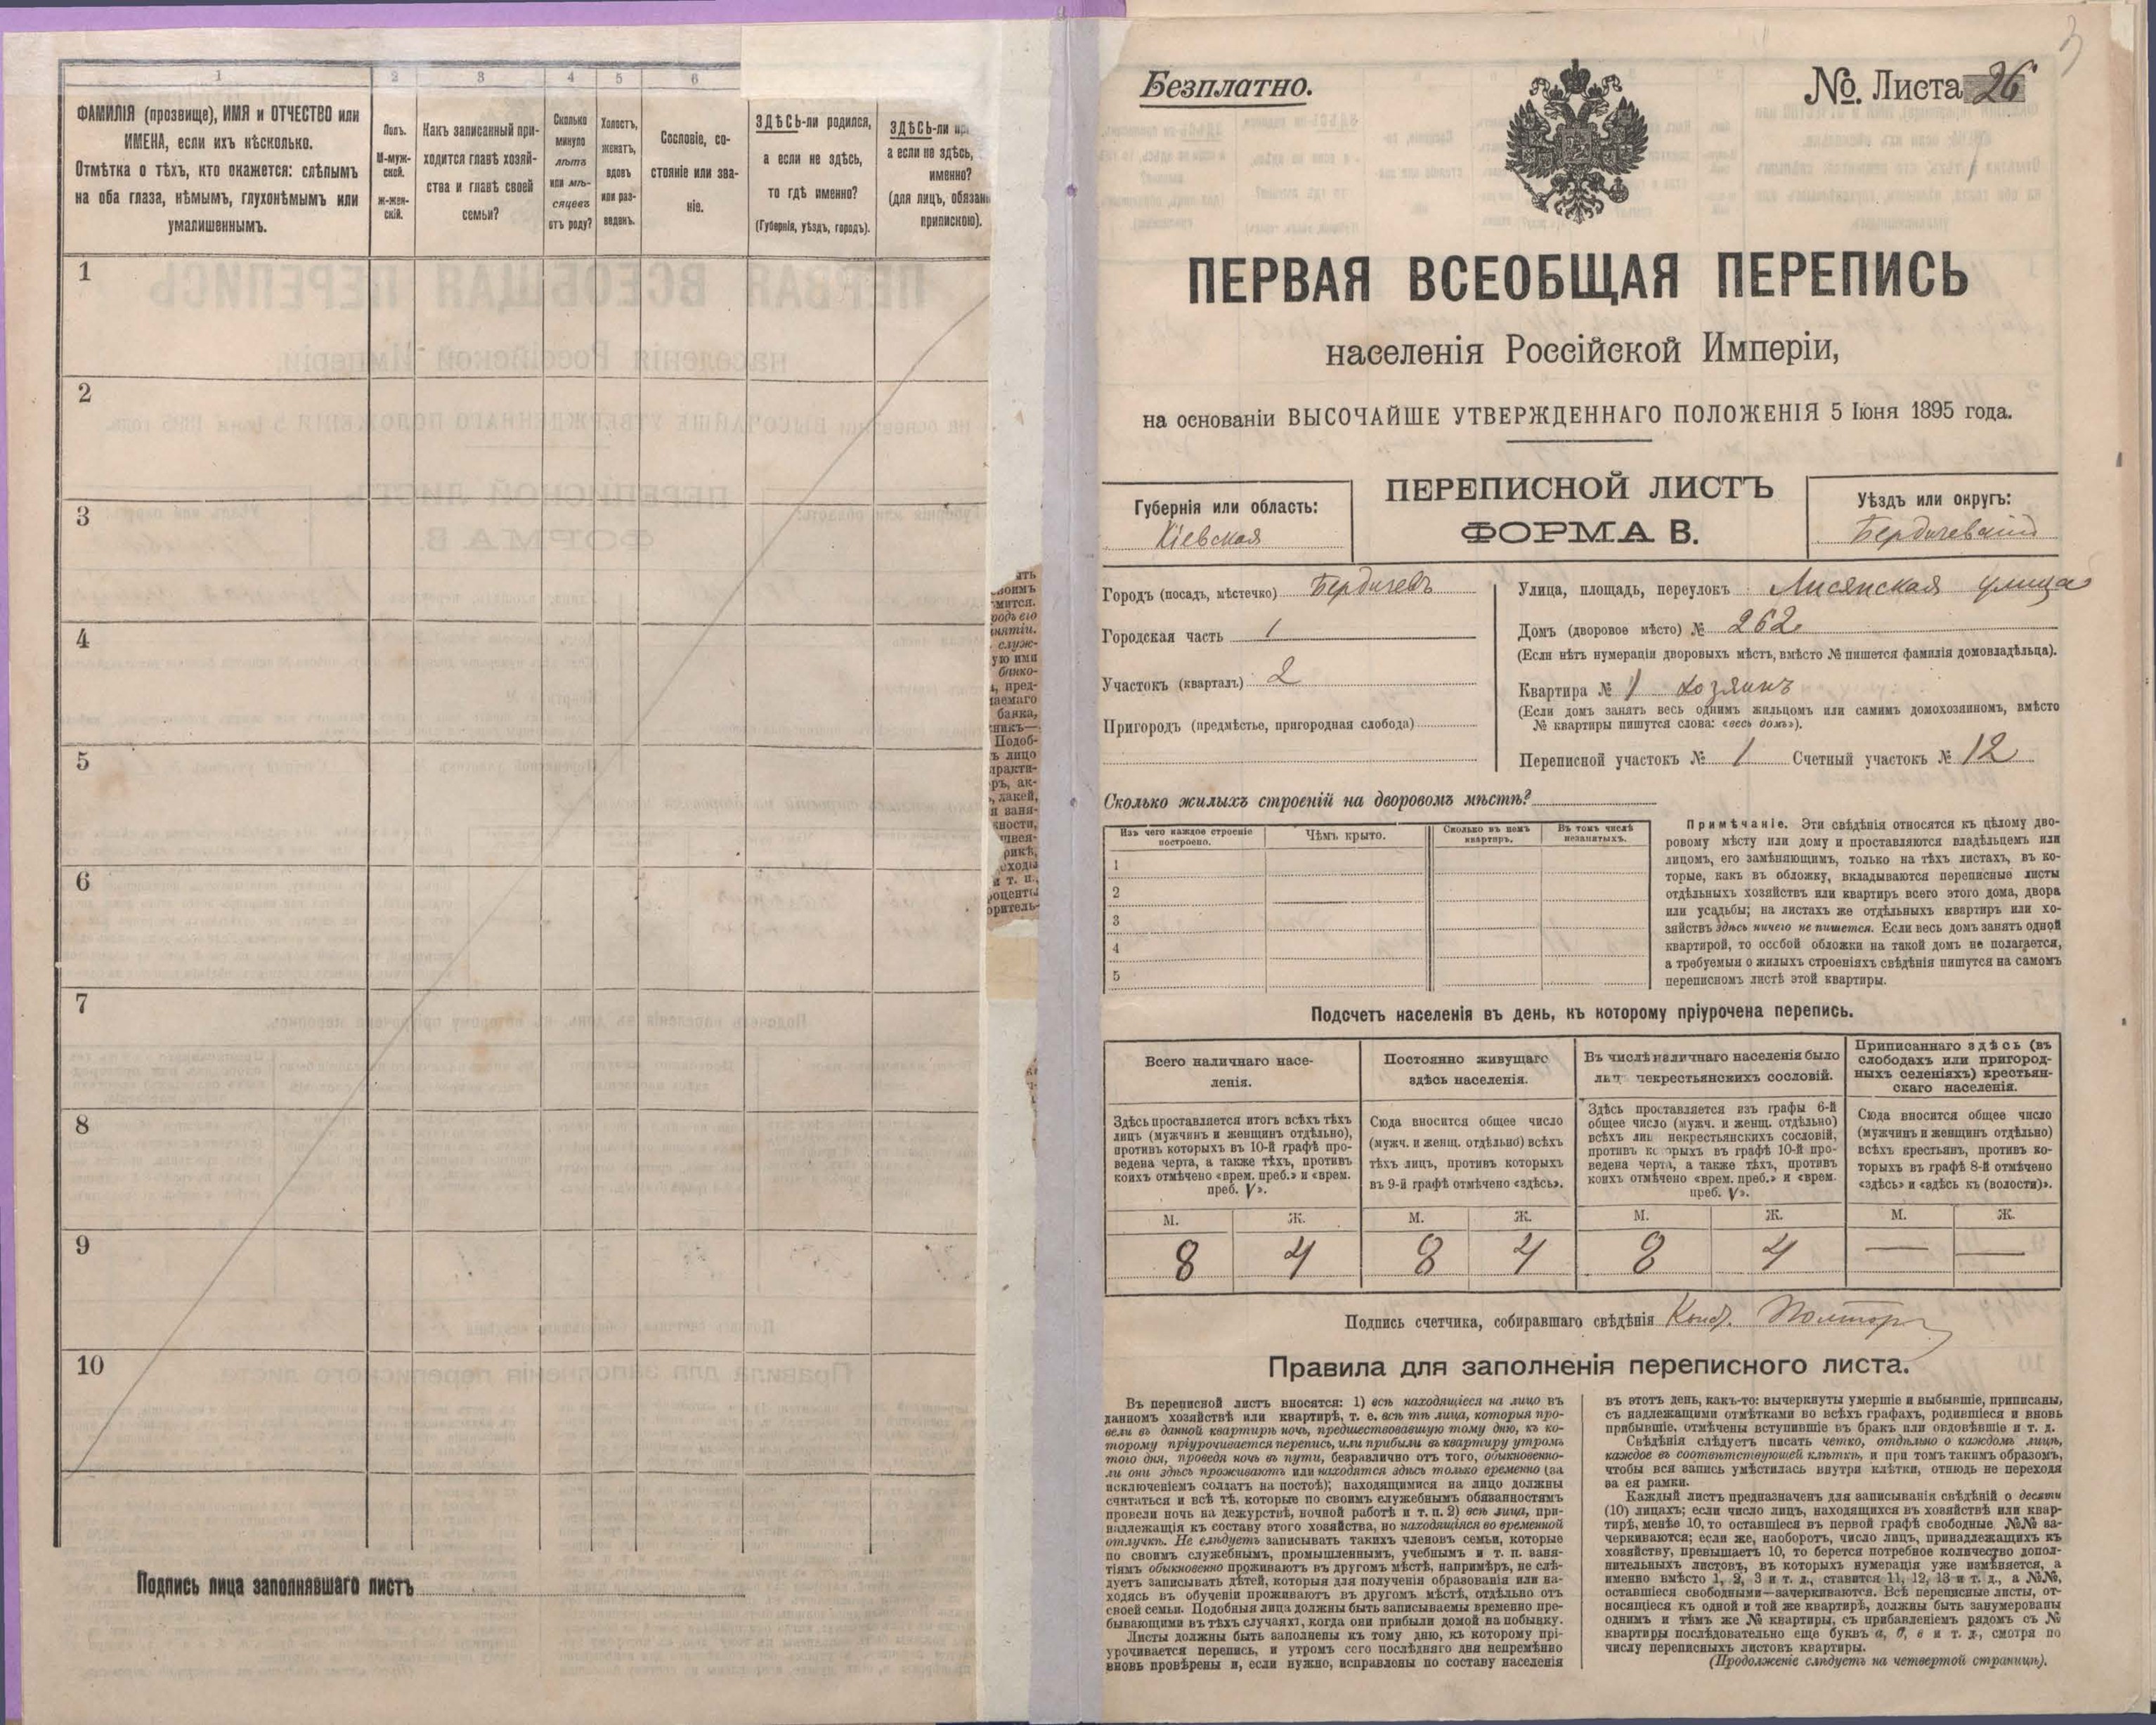 1 2 3 4 5 6
ФАМИЛІЯ (прозвище), ИМЯ и ОТЧЕСТВО или
ИМЕНА, если ихъ нѣсколько.
Отмѣтка о тѣхъ, кто окажется: слѣпымъ
на оба глаза, нѣмымъ, глухонѣмымъ или
умалишеннымъ.
Полъ.
М-муж-
ской.
ж-жен-
скій.
Какъ записанный при-
ходится главѣ хозяй-
ства и главѣ своей
семьи?
Сколько
минуло
лѣтъ
или мѣ-
сяцевъ
отъ роду?
Холостъ,
женатъ,
вдовъ
или раз-
веденъ.
Сословіе, со-
стояніе или зва-
ніе.
ЗДѢСЬ-ли родился,
а если не здѣсь,
то гдѣ именно?
(Губернія, уѣздъ, городъ).
ЗДѢСЬ-ли
а если не здѣсь,
именно?
(для лицъ,
припискою).
1
2
3
4
5
6
7
8
9
10
Подпись лица заполнявшаго листъ
Безплатно.
№. Листа 26
3
ПЕРВАЯ ВСЕОБЩАЯ ПЕРЕПИСЬ
населенія Россійской Имперіи,
на основаніи ВЫСОЧАЙШЕ УТВЕРЖДЕННАГО ПОЛОЖЕНІЯ 5 Іюня 1895 года.
Губернія или область:
Кіевская
ПЕРЕПИСНОЙ ЛИСТЪ
ФОРМА В.
Уѣздъ или округъ:
Бердичевскій
Городъ (посадъ, мѣстечко) Бердичевъ
Городская часть 1
Участокъ (кварталъ) 2
Пригородъ (предмѣстье, пригородная слобода)
Улица, площадь, переулокъ Лисянская улица
Домъ (дворовое мѣсто) № 262
(Если нѣтъ нумераціи дворовыхъ мѣстъ, вмѣсто № пишется фамилія домовладѣльца).
Квартира № 1 хозяинъ
(Если домъ занятъ весь однимъ жильцомъ или самимъ домохозяиномъ, вмѣсто
№ квартиры пишутся слова: «весь домъ»).
Переписной участокъ № 1 Счетный участокъ № 12
Сколько жилыхъ строеній на дворовомъ мѣстѣ?
Изъ чего каждое строеніе
построено.
Чѣмъ крыто.
Сколько въ немъ
квартиръ.
Въ томъ числѣ
незанятыхъ.
1
2
3
4
5
Примѣчаніе. Эти свѣдѣнія относятся къ цѣлому дво-
ровому мѣсту или дому и проставляются владѣльцемъ или
лицомъ, его замѣняющимъ, только на тѣхъ листахъ, въ ко-
торые, какъ въ обложку, вкладываются переписные листы
отдѣльныхъ хозяйствъ или квартиръ всего этого дома, двора
или усадьбы; на листахъ же отдѣльныхъ квартиръ или хо-
зяйствъ здѣсь ничего не пишется. Если весь домъ занятъ одной
квартирой, то особой обложки на такой домъ не полагается,
а требуемыя о жилыхъ строеніяхъ свѣдѣнія пишутся на самомъ
переписномъ листѣ этой квартиры.
Подсчетъ населенія въ день, къ которому пріурочена перепись.
Всего наличнаго насе-
ленія.
Здѣсь проставляется итогъ всѣхъ тѣхъ
лицъ (мужчинъ и женщинъ отдѣльно),
противъ которыхъ въ 10-й графѣ про-
ведена черта, а также тѣхъ, противъ
коихъ отмѣчено «врем. преб.» и «врем.
преб. V».
Постоянно живущаго
здѣсь населенія.
Сюда вносится общее число
(мужч. и женщ. отдѣльно) всѣхъ
тѣхъ лицъ, противъ которыхъ
въ 9-й графѣ отмѣчено «здѣсь».
Въ числѣ наличнаго населенія было
лицъ некрестьянскихъ сословій.
Здѣсь проставляется изъ графы 6-й
общее число (мужч. и женщ. отдѣльно)
всѣхъ лицъ некрестьянскихъ сословій,
противъ которыхъ въ графѣ 10-й про-
ведена черта, а также тѣхъ, противъ
коихъ отмѣчено «врем. преб.» и «врем.
преб. V».
Приписаннаго здѣсь (въ
слободахъ или пригород-
ныхъ селеніяхъ) крестьян-
скаго населенія.
Сюда вносится общее число
(мужчинъ и женщинъ отдѣльно)
всѣхъ крестьянъ, противъ ко-
торыхъ въ графѣ 8-й отмѣчено
«здѣсь» и «здѣсь къ (волости)».
М. Ж. М. Ж. М. Ж. М. Ж.
8 4 8 4 8 4 — —
Подпись счетчика, собиравшаго свѣдѣнія
Правила для заполненія переписного листа.
Въ переписной листъ вносятся: 1) всѣ находящіеся на лицо въ
данномъ хозяйствѣ или квартирѣ, т. е. всѣ тѣ лица, которыя про-
вели въ данной квартирѣ ночь, предшествовавшую тому дню, къ ко-
торому пріурочивается перепись, или прибыли въ квартиру утромъ
того дня, проведя ночь въ пути, безразлично отъ того, обыкновенно-
ли они здѣсь проживаютъ или находятся здѣсь только временно (за
исключеніемъ солдатъ на постоѣ); находящимися на лицо должны
считаться и всѣ тѣ, которые по своимъ служебнымъ обязанностямъ
провели ночь на дежурствѣ, ночной работѣ и т. п. 2) всѣ лица, при-
надлежащія къ составу этого хозяйства, но находящіяся во временной
отлучкѣ. Не слѣдуетъ записывать такихъ членовъ семьи, которые
по своимъ служебнымъ, промышленнымъ, учебнымъ и т. п. заня-
тіямъ обыкновенно проживаютъ въ другомъ мѣстѣ, напримѣръ, не слѣ-
дуетъ записывать дѣтей, которыя для полученія образованія или на-
ходясь въ обученіи проживаютъ въ другомъ мѣстѣ, отдѣльно отъ
своей семьи. Подобныя лица должны быть записываемы временно пре-
бывающими въ тѣхъ случаяхъ, когда они прибыли домой на побывку.
Листы должны быть заполнены къ тому дню, къ которому прі-
урочивается перепись, и утромъ сего послѣдняго дня непремѣнно
вновь провѣрены и, если нужно, исправлены по составу населенія
въ этотъ день, какъ-то: вычеркнуты умершіе и выбывшіе, приписаны,
съ надлежащими отмѣтками во всѣхъ графахъ, родившіеся и вновь
прибывшіе, отмѣчены вступившіе въ бракъ или овдовѣвшіе и т. д.
Свѣдѣнія слѣдуетъ писать четко, отдѣльно о каждомъ лицѣ,
каждое въ соотвѣтствующей клѣткѣ, и при томъ такимъ образомъ,
чтобы вся запись умѣстилась внутри клѣтки, отнюдь не переходя
за ея рамки.
Каждый листъ предназначенъ для записыванія свѣдѣній о десяти
(10) лицахъ; если число лицъ, находящихся въ хозяйствѣ или квар-
тирѣ, менѣе 10, то оставшіеся въ первой графѣ свободные №№ за-
черкиваются; если же, наоборотъ, число лицъ, принадлежащихъ къ
хозяйству, превышаетъ 10, то берется потребное количество допол-
нительныхъ листовъ, въ которыхъ нумерація уже измѣняется, а
именно вмѣсто 1, 2, 3 и т. д., ставится 11, 12, 13 и т. д., а №№,
оставшіеся свободными—зачеркиваются. Всѣ переписные листы, от-
носящіеся къ одной и той же квартирѣ, должны быть занумерованы
однимъ и тѣмъ же № квартиры, съ прибавленіемъ рядомъ съ №
квартиры послѣдовательно еще буквъ а, б, в и т. д., смотря по
числу переписныхъ листовъ квартиры.
(Продолженіе слѣдуетъ на четвертой страницѣ).